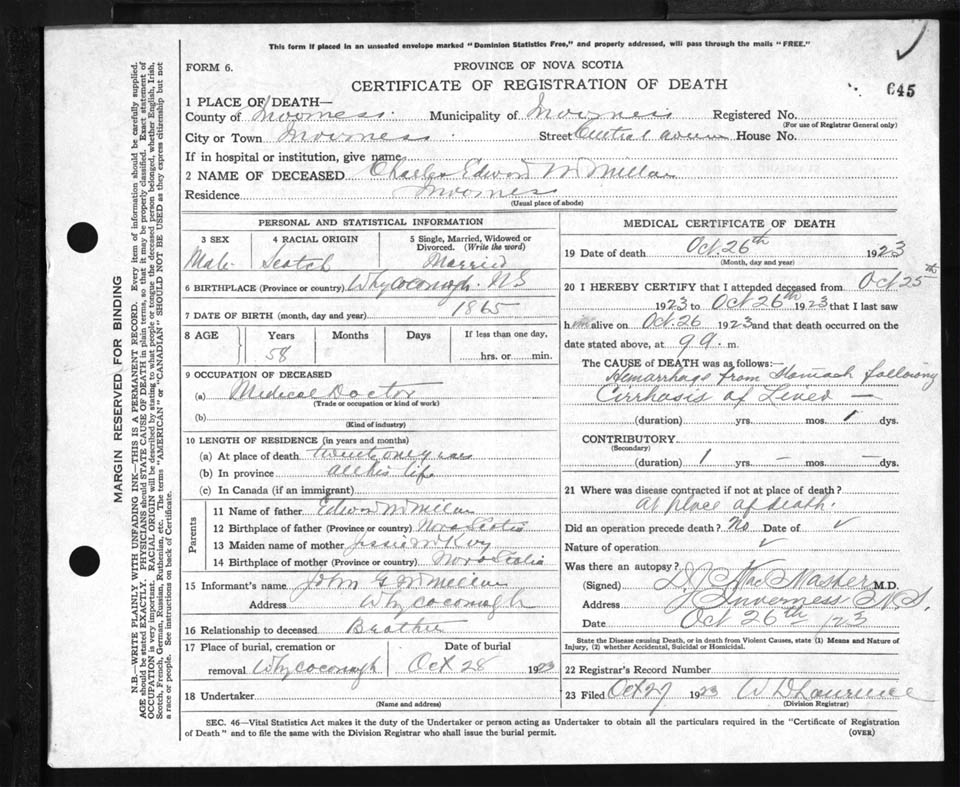 This form if placed in an unsealed envelope marked "Dominion Statistics Free," and properly addressed, will pass through the mails "FREE."
FORM 6.
PROVINCE OF NOVA SCOTIA
CERTIFICATE OF REGISTRATION OF DEATH
645
1 PLACE OF DEATH—
County of Inverness. Municipality of Inverness Registered No.
(For use of Registrar General only)
City or Town Inverness Street Central House No.
If in hospital or institution, give name
2 NAME OF DECEASED Charles Edward McMillan
Residence Inverness
(Usual place of abode)
PERSONAL AND STATISTICAL INFORMATION
3 SEX 4 RACIAL ORIGIN 5 Single, Married, Widowed or Divorced. (Write the word)
Male Scotch Married
6 BIRTHPLACE (Province or country) Whycocomagh. N S
7 DATE OF BIRTH (month, day and year) 1865
8 AGE Years Months Days If less than one day,
58 hrs. or min.
9 OCCUPATION OF DECEASED
(a) Medical Doctor
(Trade or occupation or kind of work)
(b)
(Kind of industry)
10 LENGTH OF RESIDENCE (in years and months)
(a) At place of death twenty one years
(b) In province all his life
(c) In Canada (if an immigrant)
Parents
11 Name of father Edward McMillan
12 Birthplace of father (Province or country) Nova Scotia
13 Maiden name of mother Jessie
14 Birthplace of mother (Province or country) Nova Scotia
15 Informant's name John G McMillan
Address Whycocomagh
16 Relationship to deceased Brother
17 Place of burial, cremation or
removal Whycocomagh Oct 28 1923
18 Undertaker
(Name and address)
MEDICAL CERTIFICATE OF DEATH
19 Date of death Oct. 26th 1923
(Month, day and year)
20 I HEREBY CERTIFY that I attended deceased from Oct 25th
1923 to Oct 26th 1923 that I last saw
him alive on Oct. 26 1923 and that death occurred on the
date stated above, at 9 a. m.
The CAUSE of DEATH was as follows:—
Hemarrhage from Stomach following
Cirrhosis of Liver —
(duration) yrs. mos. 1 dys.
CONTRIBUTORY
(Secondary)
(duration) 1 yrs. — mos. — dys.
21 Where was disease contracted if not at place of death?
at place of death.
Did an operation precede death? No Date of ✓
Nature of operation ✓
Was there an autopsy?
(Signed) MacMaster M.D.
Address Inverness N.S.
Date Oct 26th /23
State the Disease causing Death, or in death from Violent Causes, state (1) Means and Nature of Injury, (2) whether Accidental, Suicidal or Homicidal.
22 Registrar's Record Number
23 Filed Oct 27 1923 W D Lawrence
(Division Registrar)
SEC. 46—Vital Statistics Act makes it the duty of the Undertaker or person acting as Undertaker to obtain all the particulars required in the "Certificate of Registration
of Death" and to file the same with the Division Registrar who shall issue the burial permit.
(OVER)
MARGIN RESERVED FOR BINDING
N.B.—WRITE PLAINLY WITH UNFADING INK—THIS IS A PERMANENT RECORD. Every item of information should be carefully supplied.
AGE should be stated EXACTLY. PHYSICIANS should STATE CAUSE OF DEATH in plain terms, so that it may be properly classified. Exact statement of
OCCUPATION is very important. RACIAL ORIGIN will be described by stating to what people or tongue the deceased person belonged, whether English, Irish,
Scotch, French, German, Russian, Ruthenian, etc. The terms "AMERICAN" or "CANADIAN" SHOULD NOT BE USED as they express citizenship but not
a race or people. See instructions on back of Certificate.